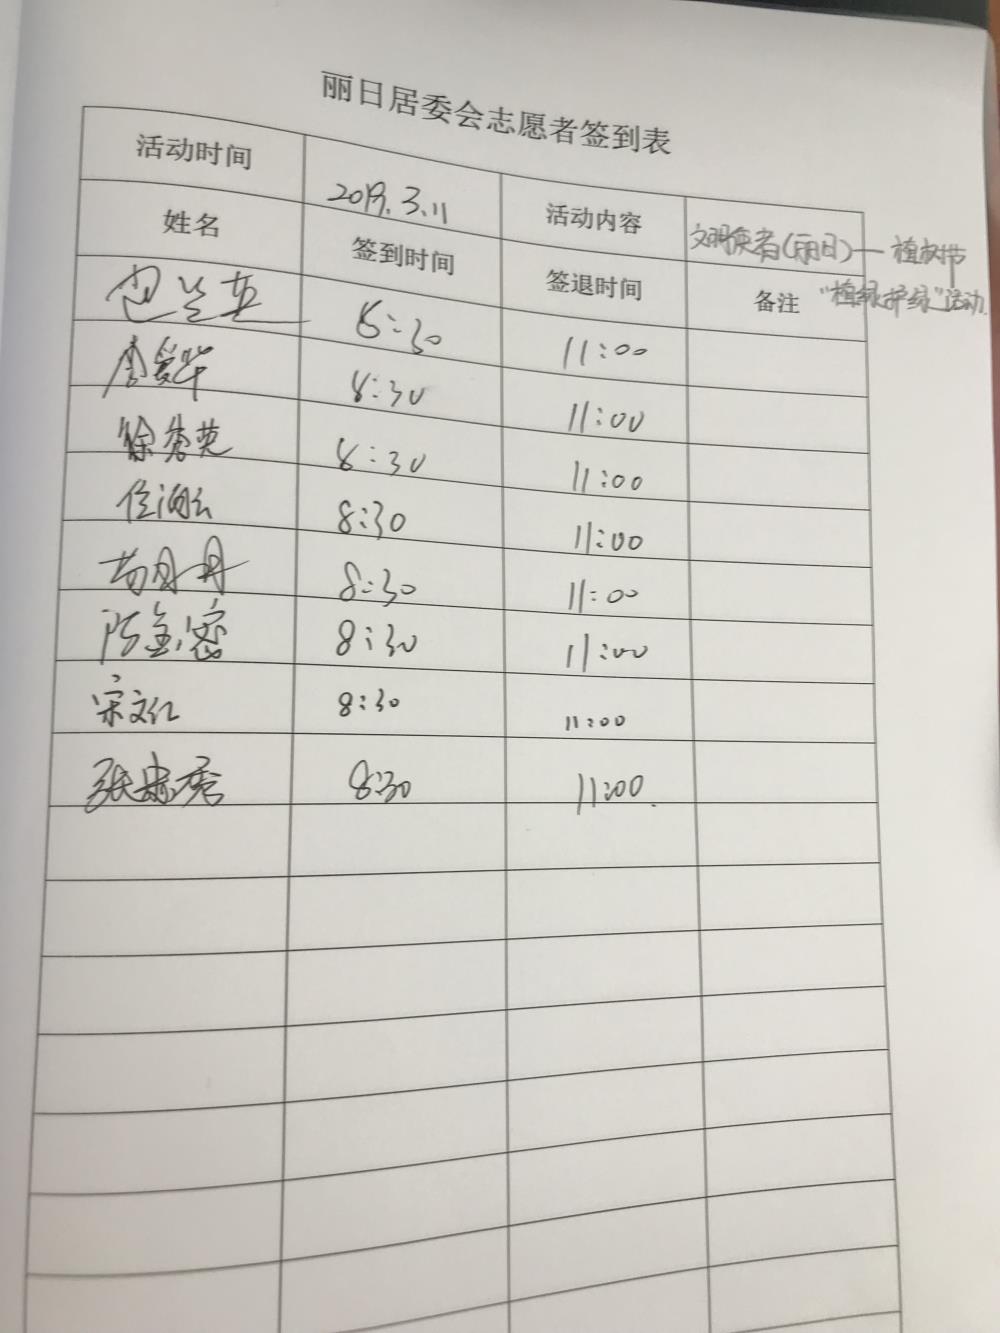 丽日居委会志愿者签到表
活动时间 2019.3.11 活动内容 文明使者(丽日)—植树节
"植绿护绿"活动.
姓名 签到时间 签退时间 备注
包兰英 8:30 11:00
李爱华 8:30 11:00
徐秀英 8:30 11:00
8:30 11:00
8:30 11:00
陈金密 8:30 11:00
宋文仁 8:30 11:00
8:30 11:00.